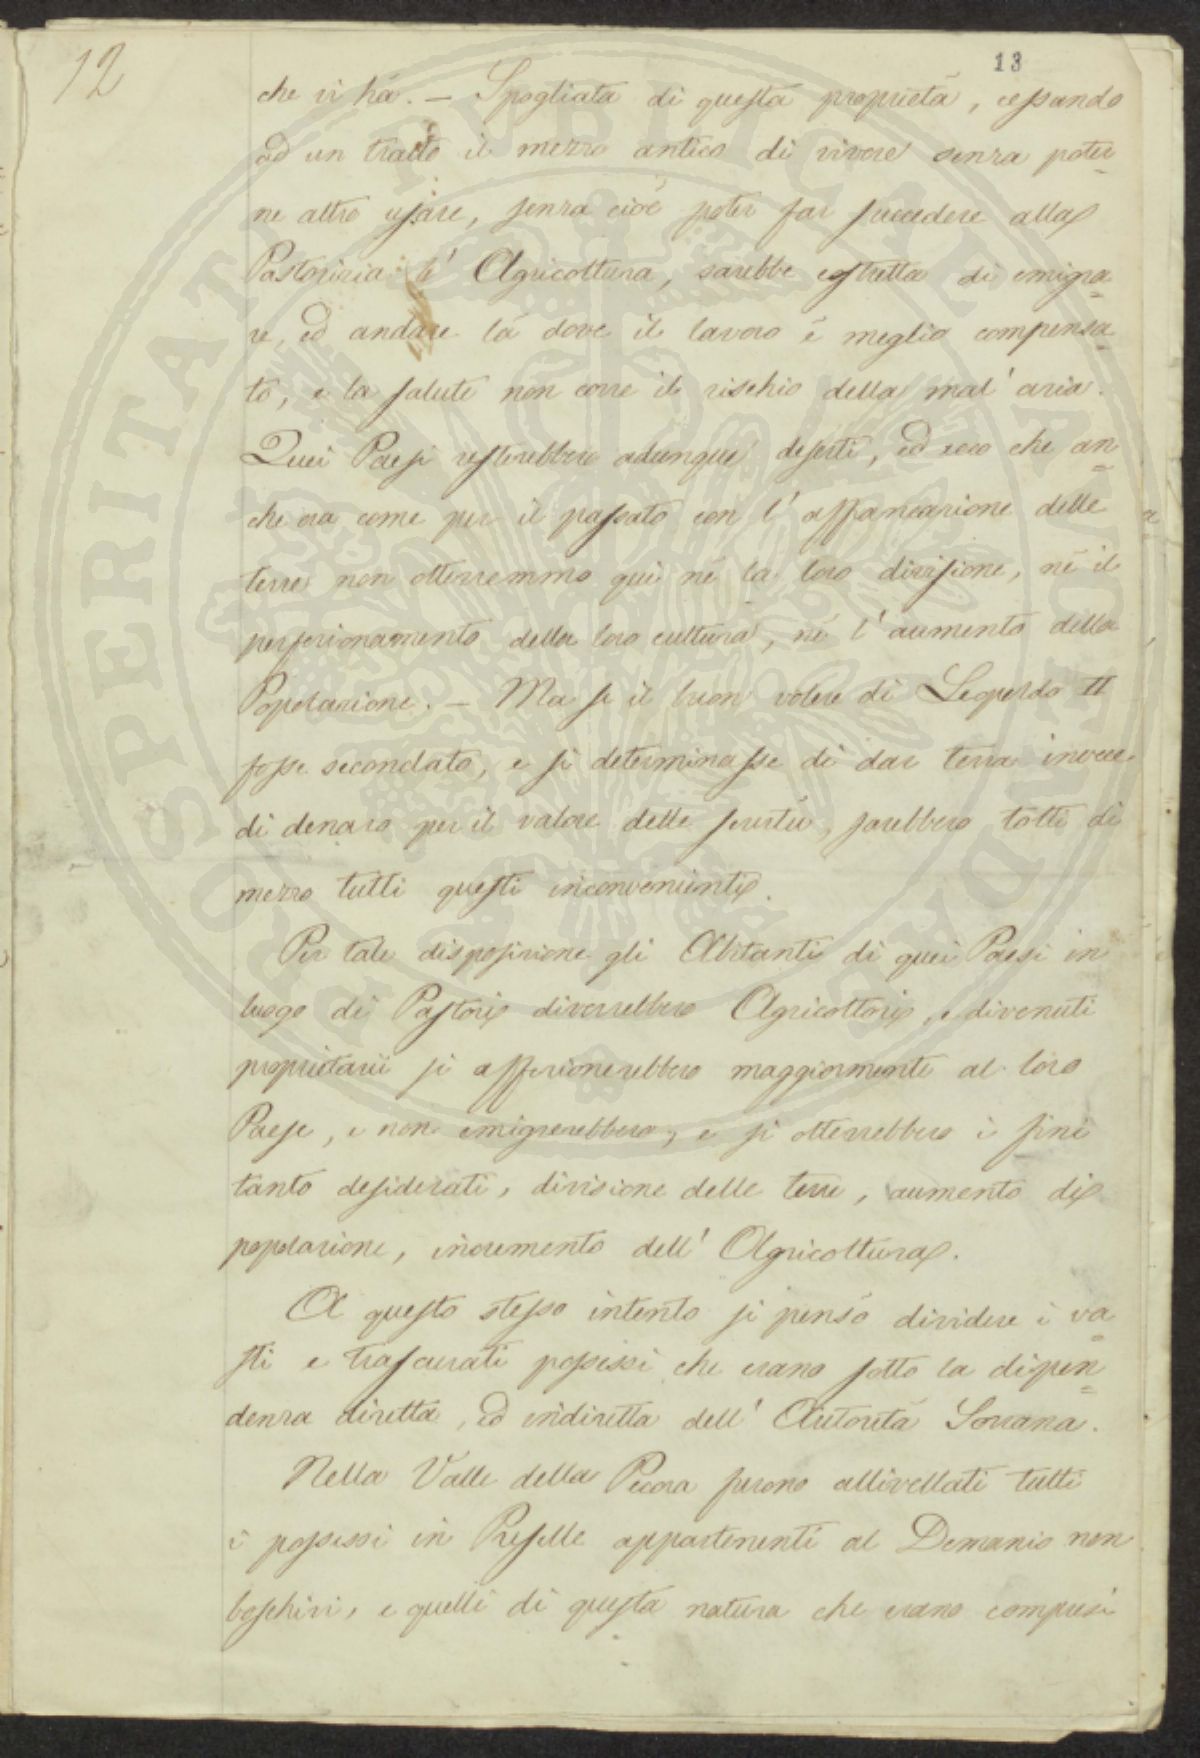 12
13
che vi há. — Spogliata di questa proprietá, cessando
ad un tratto il mezzo antico di vivere senza poter=
ne altro usare, senza cioé poter far succedere alla
Pastorizia l' Agricoltura, sarebbe costretta di emigra=
re, ed andare lá dove il lavoro é meglio compensa=
to, e la salute non corre il rischio della mal' aria.
Quei Paesi resterebbero adunque deserti, ed ecco che an=
che ora come per il passato con l' affrancazione delle
terre non otterremmo qui né la loro divisione, né il
perfezionamento della loro cultura, né l' aumento della
Popolazione. — Ma se il buon volere di Leopoldo II
fosse secondato, e si determinasse di dar terra invece
di denaro per il valore delle servitú, sarebbero tolti di
mezzo tutti questi inconvenienti.
Per tale disposizione gli Abitanti di quei Paesi in
luogo di Pastori diverrebbero Agricoltori, e divenuti
proprietarii si affezionerebbero maggiormente al loro
Paese, e non emigrerebbero, e si otterrebbero i fini
tanto desiderati, divisione delle terre, aumento di
popolazione, incremento dell' Agricoltura.
A questo stesso intento si pensó dividere i va=
sti e trascurati possessi che erano sotto la dipen=
denza diretta, ed indiretta dell' Autoritá Sovrana.
Nella Valle della Pecora furono allivellati tutti
i possessi in Preselle appartenenti al Demanio non
boschivi, e quelli di questa natura che erano compresi
PROSPERITATI PUBLICAE AUGENDAE